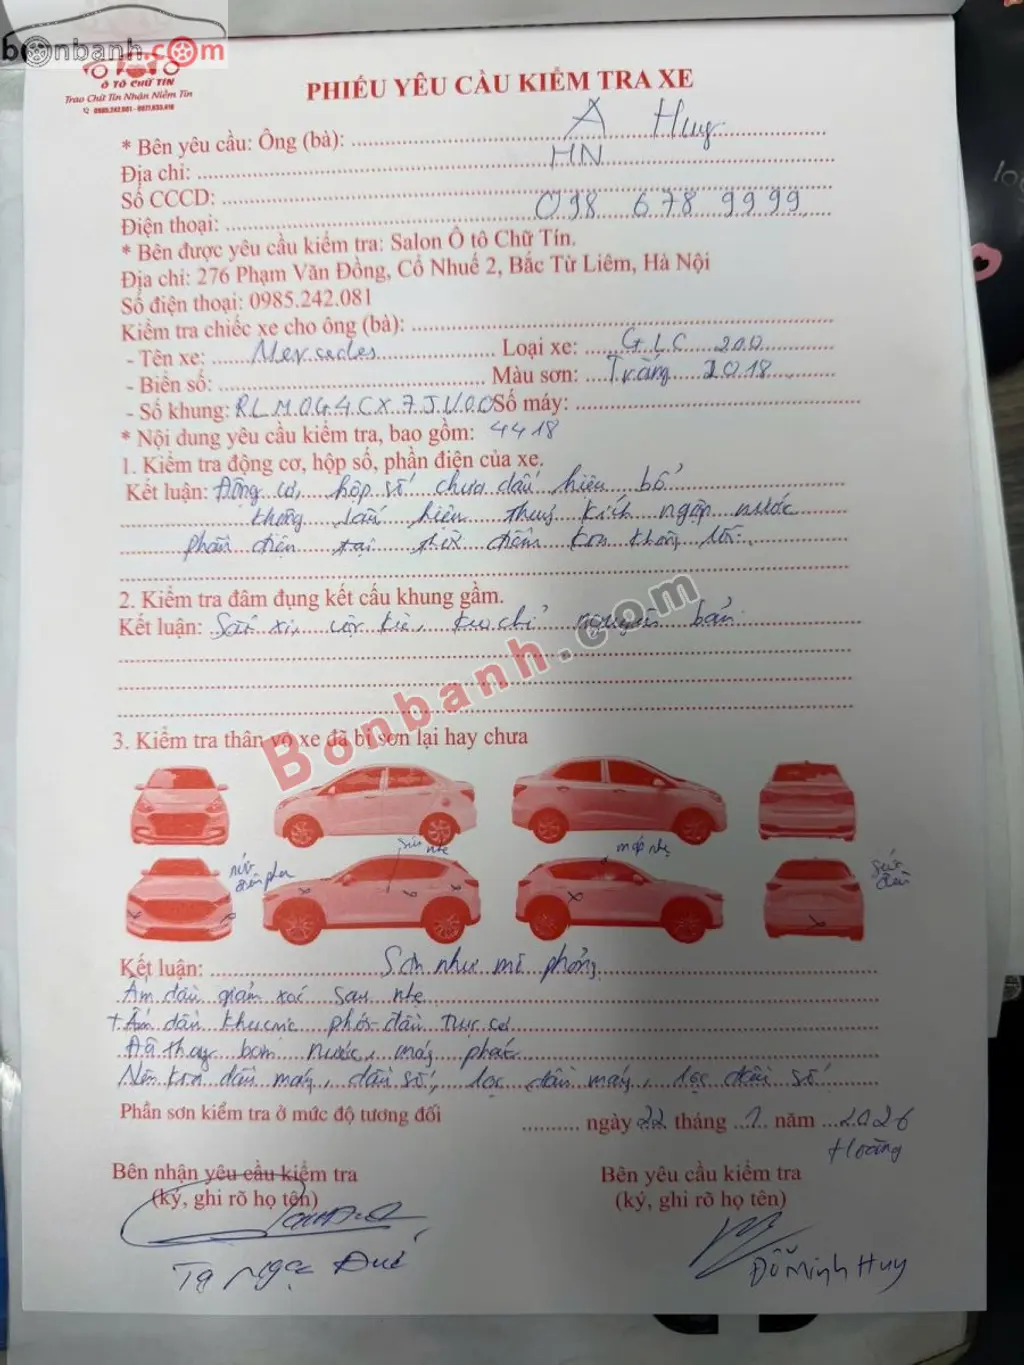 bonbanh.com
Ô TÔ CHỮ TÍN
Trao Chữ Tín Nhận Niềm Tin
0985.242.081 - 0971.633.416
PHIẾU YÊU CẦU KIỂM TRA XE
* Bên yêu cầu: Ông (bà): A Huy
Địa chỉ: HN
Số CCCD:
Điện thoại: 098 678 9999
* Bên được yêu cầu kiểm tra: Salon Ô tô Chữ Tín.
Địa chỉ: 276 Phạm Văn Đồng, Cổ Nhuế 2, Bắc Từ Liêm, Hà Nội
Số điện thoại: 0985.242.081
Kiểm tra chiếc xe cho ông (bà):
- Tên xe: Mercedes Loại xe: GLC 200
- Biển số: Màu sơn: Trắng 2018
- Số khung: RLM0G4CX7JV00 Số máy:
* Nội dung yêu cầu kiểm tra, bao gồm: 4418
1. Kiểm tra động cơ, hộp số, phần điện của xe.
Kết luận: Động cơ, hộp số chưa dấu hiệu bổ
không dấu hiệu thuỷ kích ngập nước
phần điện tại thời điểm ktra không lỗi
2. Kiểm tra đâm đụng kết cấu khung gầm.
Kết luận: Sát xi, cốt kê, keo chỉ nguyên bản
3. Kiểm tra thân vỏ xe đã bị sơn lại hay chưa
sứt nhẹ
móp nhẹ
nứt
đèn pha
Kết luận: Sơn như mô phỏng
Ấm đầu giảm xóc sau nhẹ
+ Ấm dầu thước phớt đầu trục cơ
Đã thay bơm nước, máy phát
Nên ktra dầu máy, dầu số, lọc dầu máy, lọc dầu số
Phần sơn kiểm tra ở mức độ tương đối
ngày 22 tháng 1 năm 2026
Hoàng
Bên nhận yêu cầu kiểm tra Bên yêu cầu kiểm tra
(ký, ghi rõ họ tên) (ký, ghi rõ họ tên)
Tạ Ngọc Đức Đỗ Minh Huy
Bonbanh.com